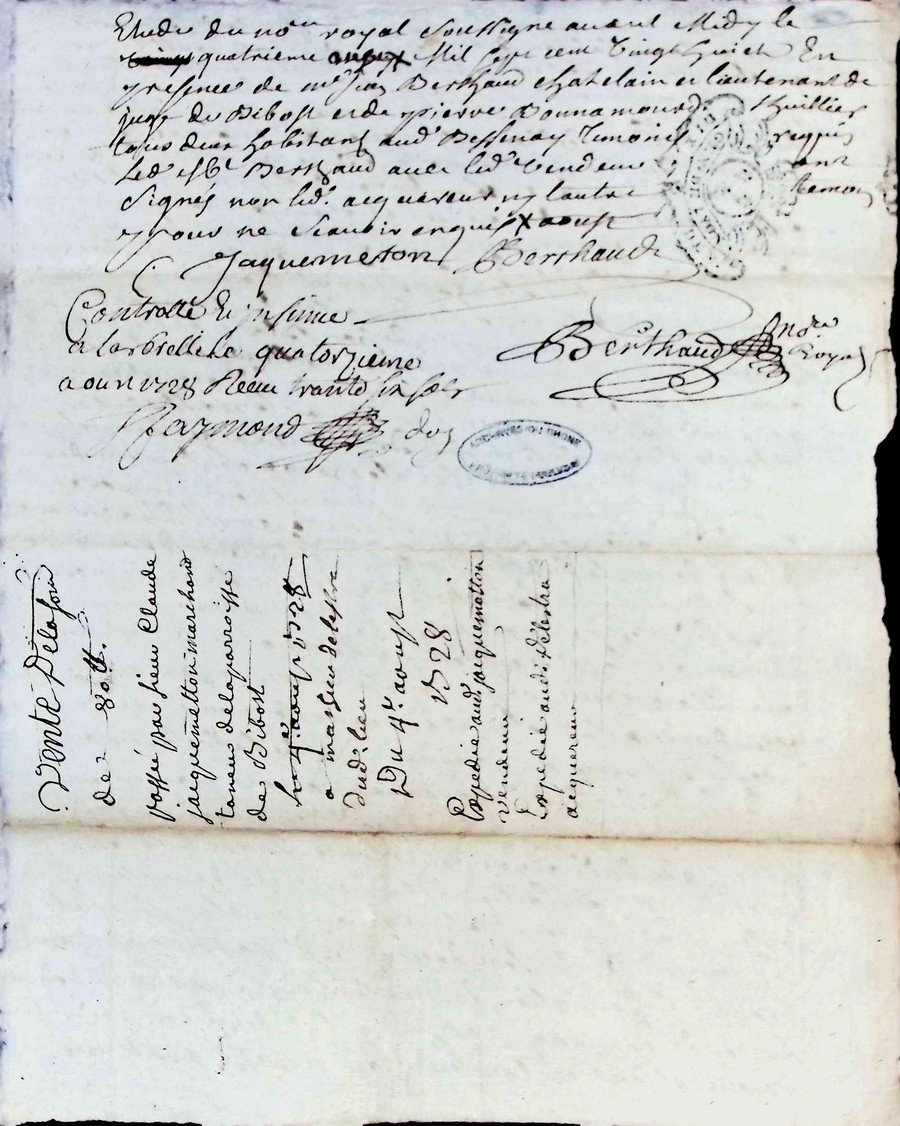 Etude du no.re royal soussigné avant Midy le
quatrieme Mil sept cent vingt huict En
presence de m.e Jean Berthaud chatelain et lieutenant de
juge de Bibost et de pierre Bonnamour thuillier
tous deux habitants aud. Bessenay temoins requis
Led. Berthaud avec led. vendeur ont
signés non led. acquereur ny l'autre temoin
pour ne scavoir enquis x aoust
Jaquemeton Berthaud
Controllé Et insinué
a larbrelle le quatorzieme
aoust 1728 Receu trante six sols
Raymond
Berthaud No.re
Royal
ARCHIVES DU RHONE
Vente
de 80 tt.
passée par sieur Claude
jacquemetton marchand
taneur de la parroisse
de Bibost
le 4e. aoust 1728
a
dud. lieu
Du 4e. aoust
1728
Expedié aud. jacquemetton
vendeur
Expedié aud.
acquereur